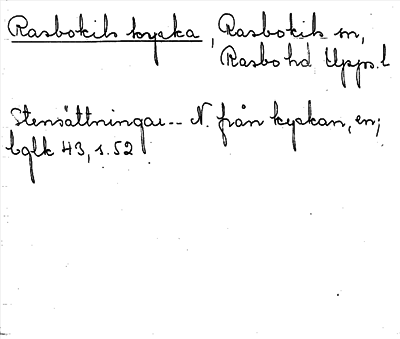 Rasbokils kyrka, Rasbokils sn,
Rasbo hd Upps. l
Stensättningar -- N. från kyrkan, en;
bglk 43, s. 52